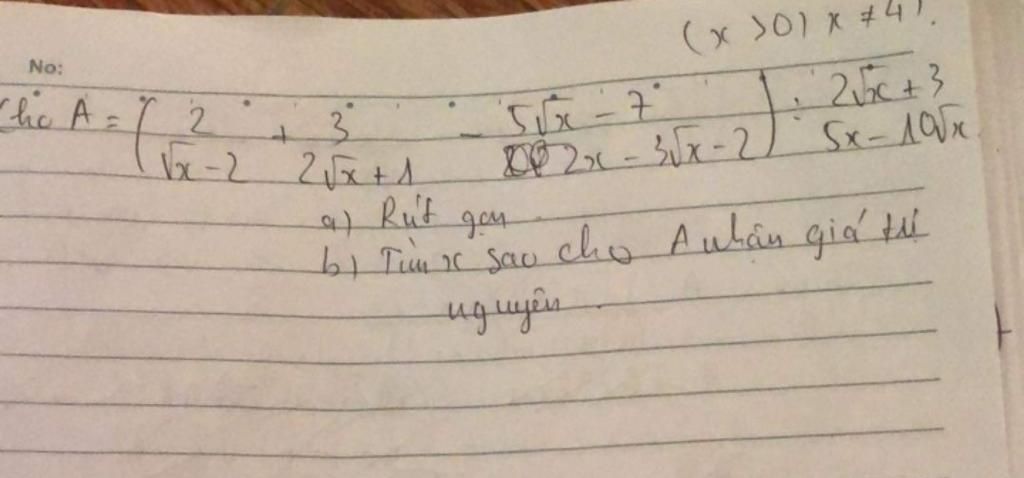 (x > 0) x ≠ 4).
No:
Cho A = (2/(√x - 2) + 3/(2√x + 1) - (5√x - 7)/(2x - 3√x - 2)) : (2√x + 3)/(5x - 10√x)
a) Rút gọn
b) Tìm x sao cho A nhận giá trị
nguyên.